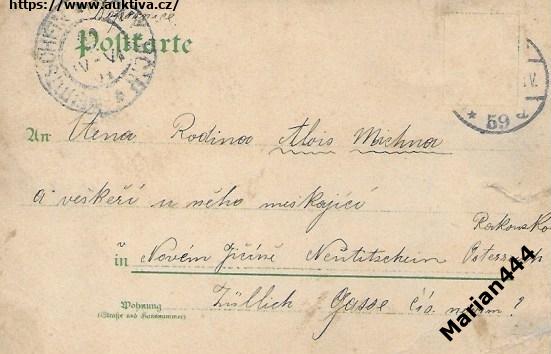 https://www.auktiva.cz/
Dopisnice
Postkarte
NEUTITSCHEIN
59
An Ctěná Rodina Alois Michna
a veškeří u něho meškající
Rakousko
in Novém Jičíně Neutitschein Österreich
Wohnung
(Straße und Hausnummer)
Züllich Gasse čís. nevím?
Marian444